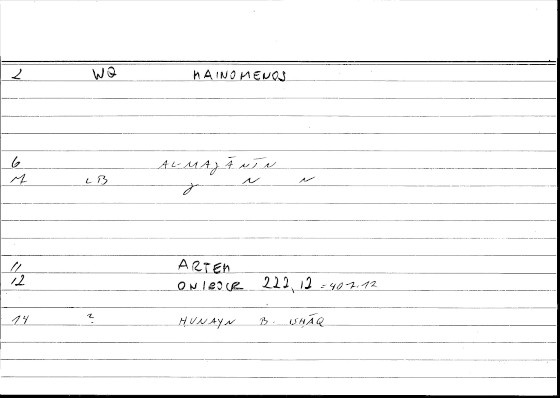 2 WQ MAINOMENOS
6 AL-MAǦĀNĪN
M LB ǧ N N
11 ARTEM
12 ONIROCR 222,12 = 407.12
14 ? HUNAYN B. ISHĀQ